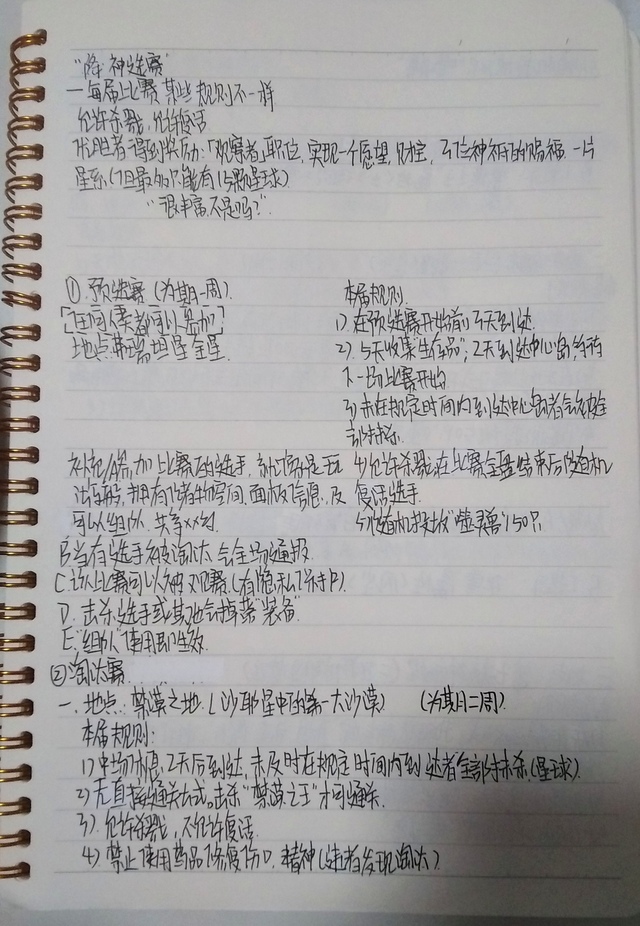 “降神选赛”
一每届比赛某些规则不一样
允许杀戮,允许复活
优胜者得到奖励:「观察者」职位,实现一个愿望,财宝,神祇的赐福.一片
星系(但最多只能有15颗星球)
“很丰富,不是吗?”
①.预选赛(为期一周).
「任何人类都可以参加」
地点:弗瑞坦星全星
本届规则.
1)在预选赛开始前3天到达.
2).5天收集“生存品”;2天到达中心岛,等待
下一场比赛开始
3)未在规定时间内到达中心岛者会被全
部抹杀.
4)允许杀戮,在比赛全盘结束后随机
复活选手.
5)随机投放“噬灵兽”150只
补充/A.参加比赛的选手,就像是玩
游戏般,拥有储物空间.面板信息,及
可以组队.共享
B当有选手被淘汰会全场通报.
C.该比赛可以被观赛.(有隐私保护)
D.击杀选手或其他会掉落“装备”
E.“组队”使用即生效
②淘汰赛
一.地点:禁漠之地.(沙耶星中的第一大沙漠) (为期二周)
本届规则:
1)中场休息2天后到达,未及时在规定时间内到达者全部抹杀.(星球)
2)无直接通关方式,击杀“禁漠之王”才可通关.
3).允许杀戮,不允许复活.
4)禁止使用药品修复伤口.精神(违者发现淘汰)